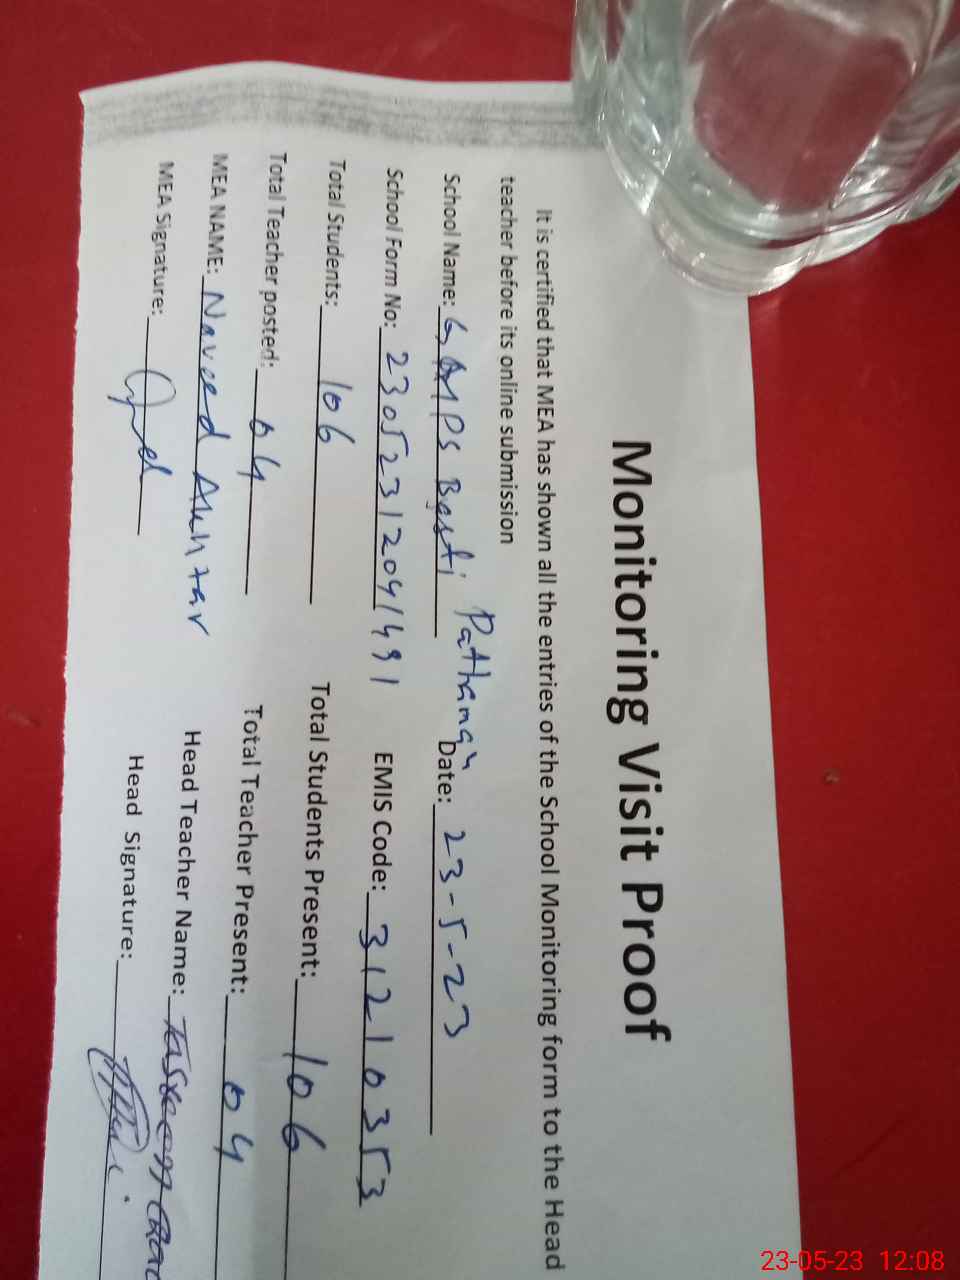 Monitoring Visit Proof
It is certified that MEA has shown all the entries of the School Monitoring form to the Head
teacher before its online submission
School Name: GAMPS Basti Pathanan Date: 23-5-23
School Form No: 23052312041491 EMIS Code: 31210353
Total Students: 106 Total Students Present: 106
Total Teacher posted: 04 Total Teacher Present: 04
MEA NAME: Naveed Akhtar Head Teacher Name:
MEA Signature: Head Signature:
23-05-23 12:08